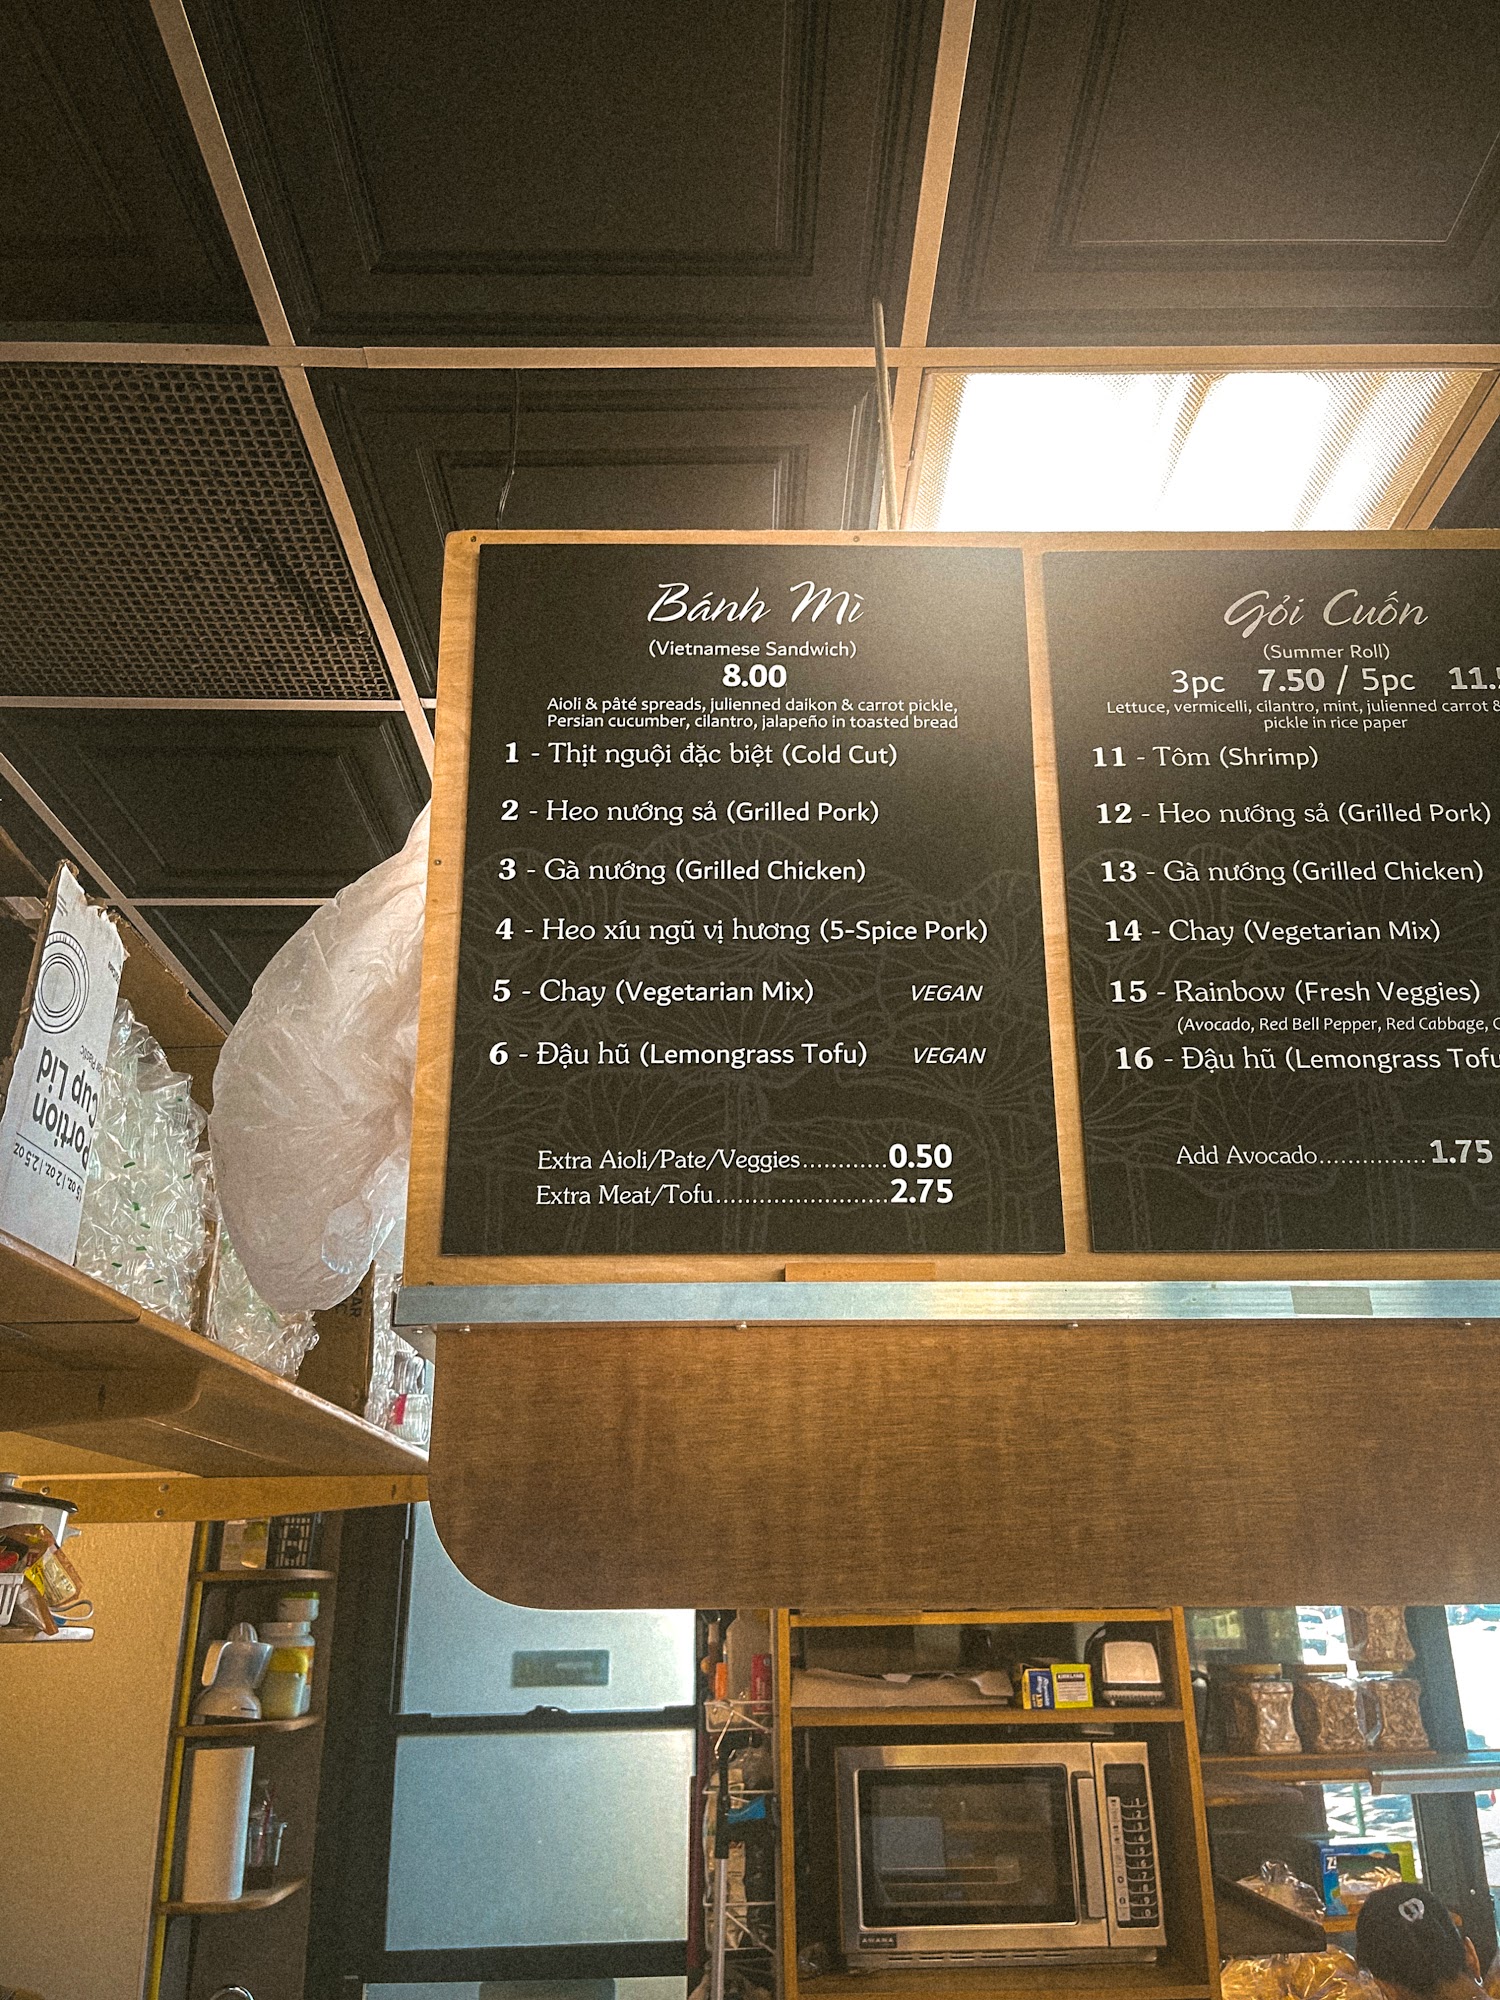 Bánh Mì
(Vietnamese Sandwich)
8.00
Aioli & pâté spreads, julienned daikon & carrot pickle,
Persian cucumber, cilantro, jalapeño in toasted bread
1 - Thịt nguội đặc biệt (Cold Cut)
2 - Heo nướng sả (Grilled Pork)
3 - Gà nướng (Grilled Chicken)
4 - Heo xíu ngũ vị hương (5-Spice Pork)
5 - Chay (Vegetarian Mix) VEGAN
6 - Đậu hũ (Lemongrass Tofu) VEGAN
Extra Aioli/Pate/Veggies............0.50
Extra Meat/Tofu........................2.75
Gỏi Cuốn
(Summer Roll)
3pc 7.50 / 5pc
Lettuce, vermicelli, cilantro, mint, julienned carrot &
pickle in rice paper
11 - Tôm (Shrimp)
12 - Heo nướng sả (Grilled Pork)
13 - Gà nướng (Grilled Chicken)
14 - Chay (Vegetarian Mix)
15 - Rainbow (Fresh Veggies)
(Avocado, Red Bell Pepper, Red Cabbage,
16 - Đậu hũ (Lemongrass Tofu
Add Avocado...............1.75
Portion
Cup Lid
2 oz. | 2.5 oz
KIRKLAND
AMANA